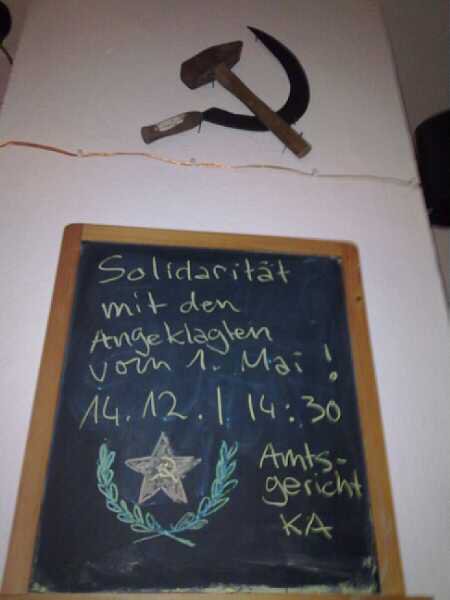 Solidarität
mit den
Angeklagten
vom 1. Mai!
14.12. | 14:30
Amts-
gericht
KA